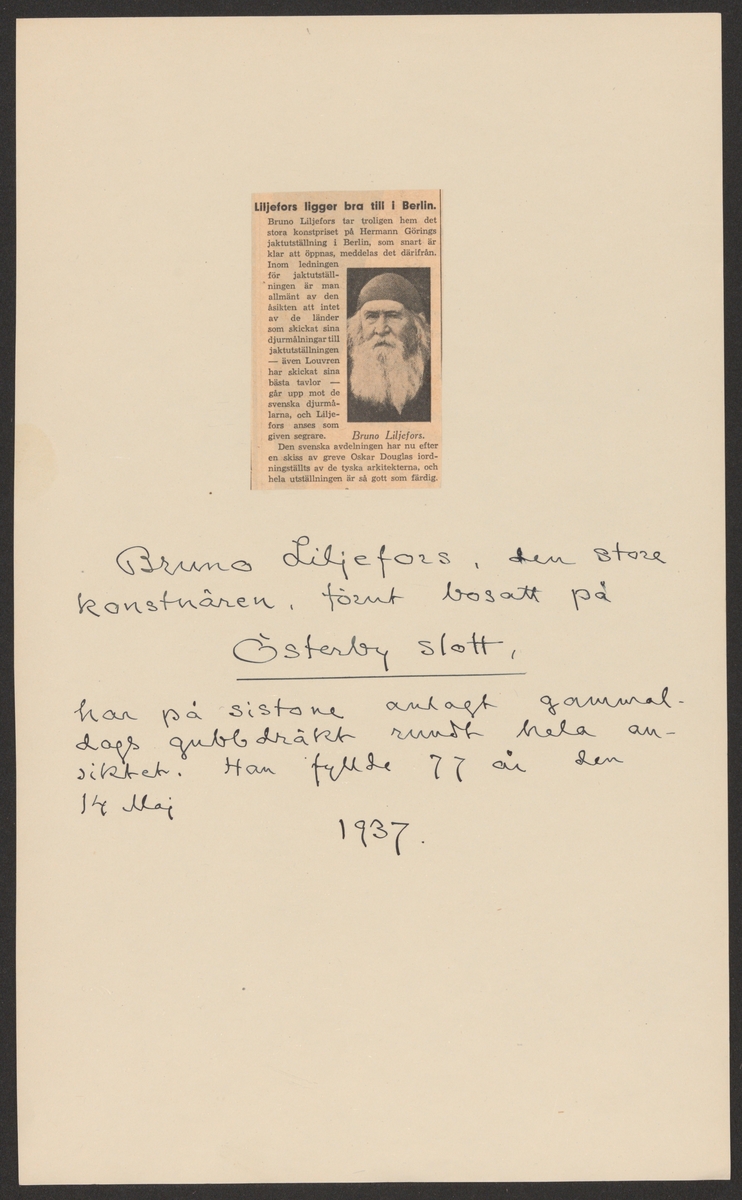 Liljefors ligger bra till i Berlin.
Bruno Liljefors tar troligen hem det
stora konstpriset på Hermann Görings
jaktutställning i Berlin, som snart är
klar att öppnas, meddelas det därifrån.
Inom ledningen
för jaktutställ-
ningen är man
allmänt av den
åsikten att intet
av de länder
som skickat sina
djurmålningar till
jaktutställningen
— även Louvren
har skickat sina
bästa tavlor —
går upp mot de
svenska djurmå-
larna, och Lilje-
fors anses som
given segrare.
Bruno Liljefors.
Den svenska avdelningen har nu efter
en skiss av greve Oskar Douglas iord-
ningställts av de tyska arkitekterna, och
hela utställningen är så gott som färdig.
Bruno Liljefors, den store
konstnären, förut bosatt på
Österby slott,
har på sistone anlagt gammal-
dags gubbdräkt rundt hela an-
siktet. Han fyllde 77 år den
14 Maj
1937.